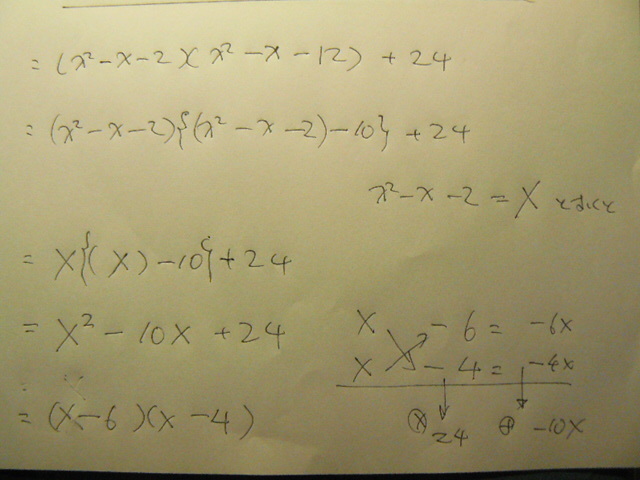 = (x²-x-2)(x²-x-12) + 24
= (x²-x-2){(x²-x-2)-10} + 24
x²-x-2 = X とおくと
= X{(X)-10}+24
= X²-10X+24
X -6 = -6X
X -4 = -4X
= (X-6)(X-4)
⊗ 24 ⊕ -10X